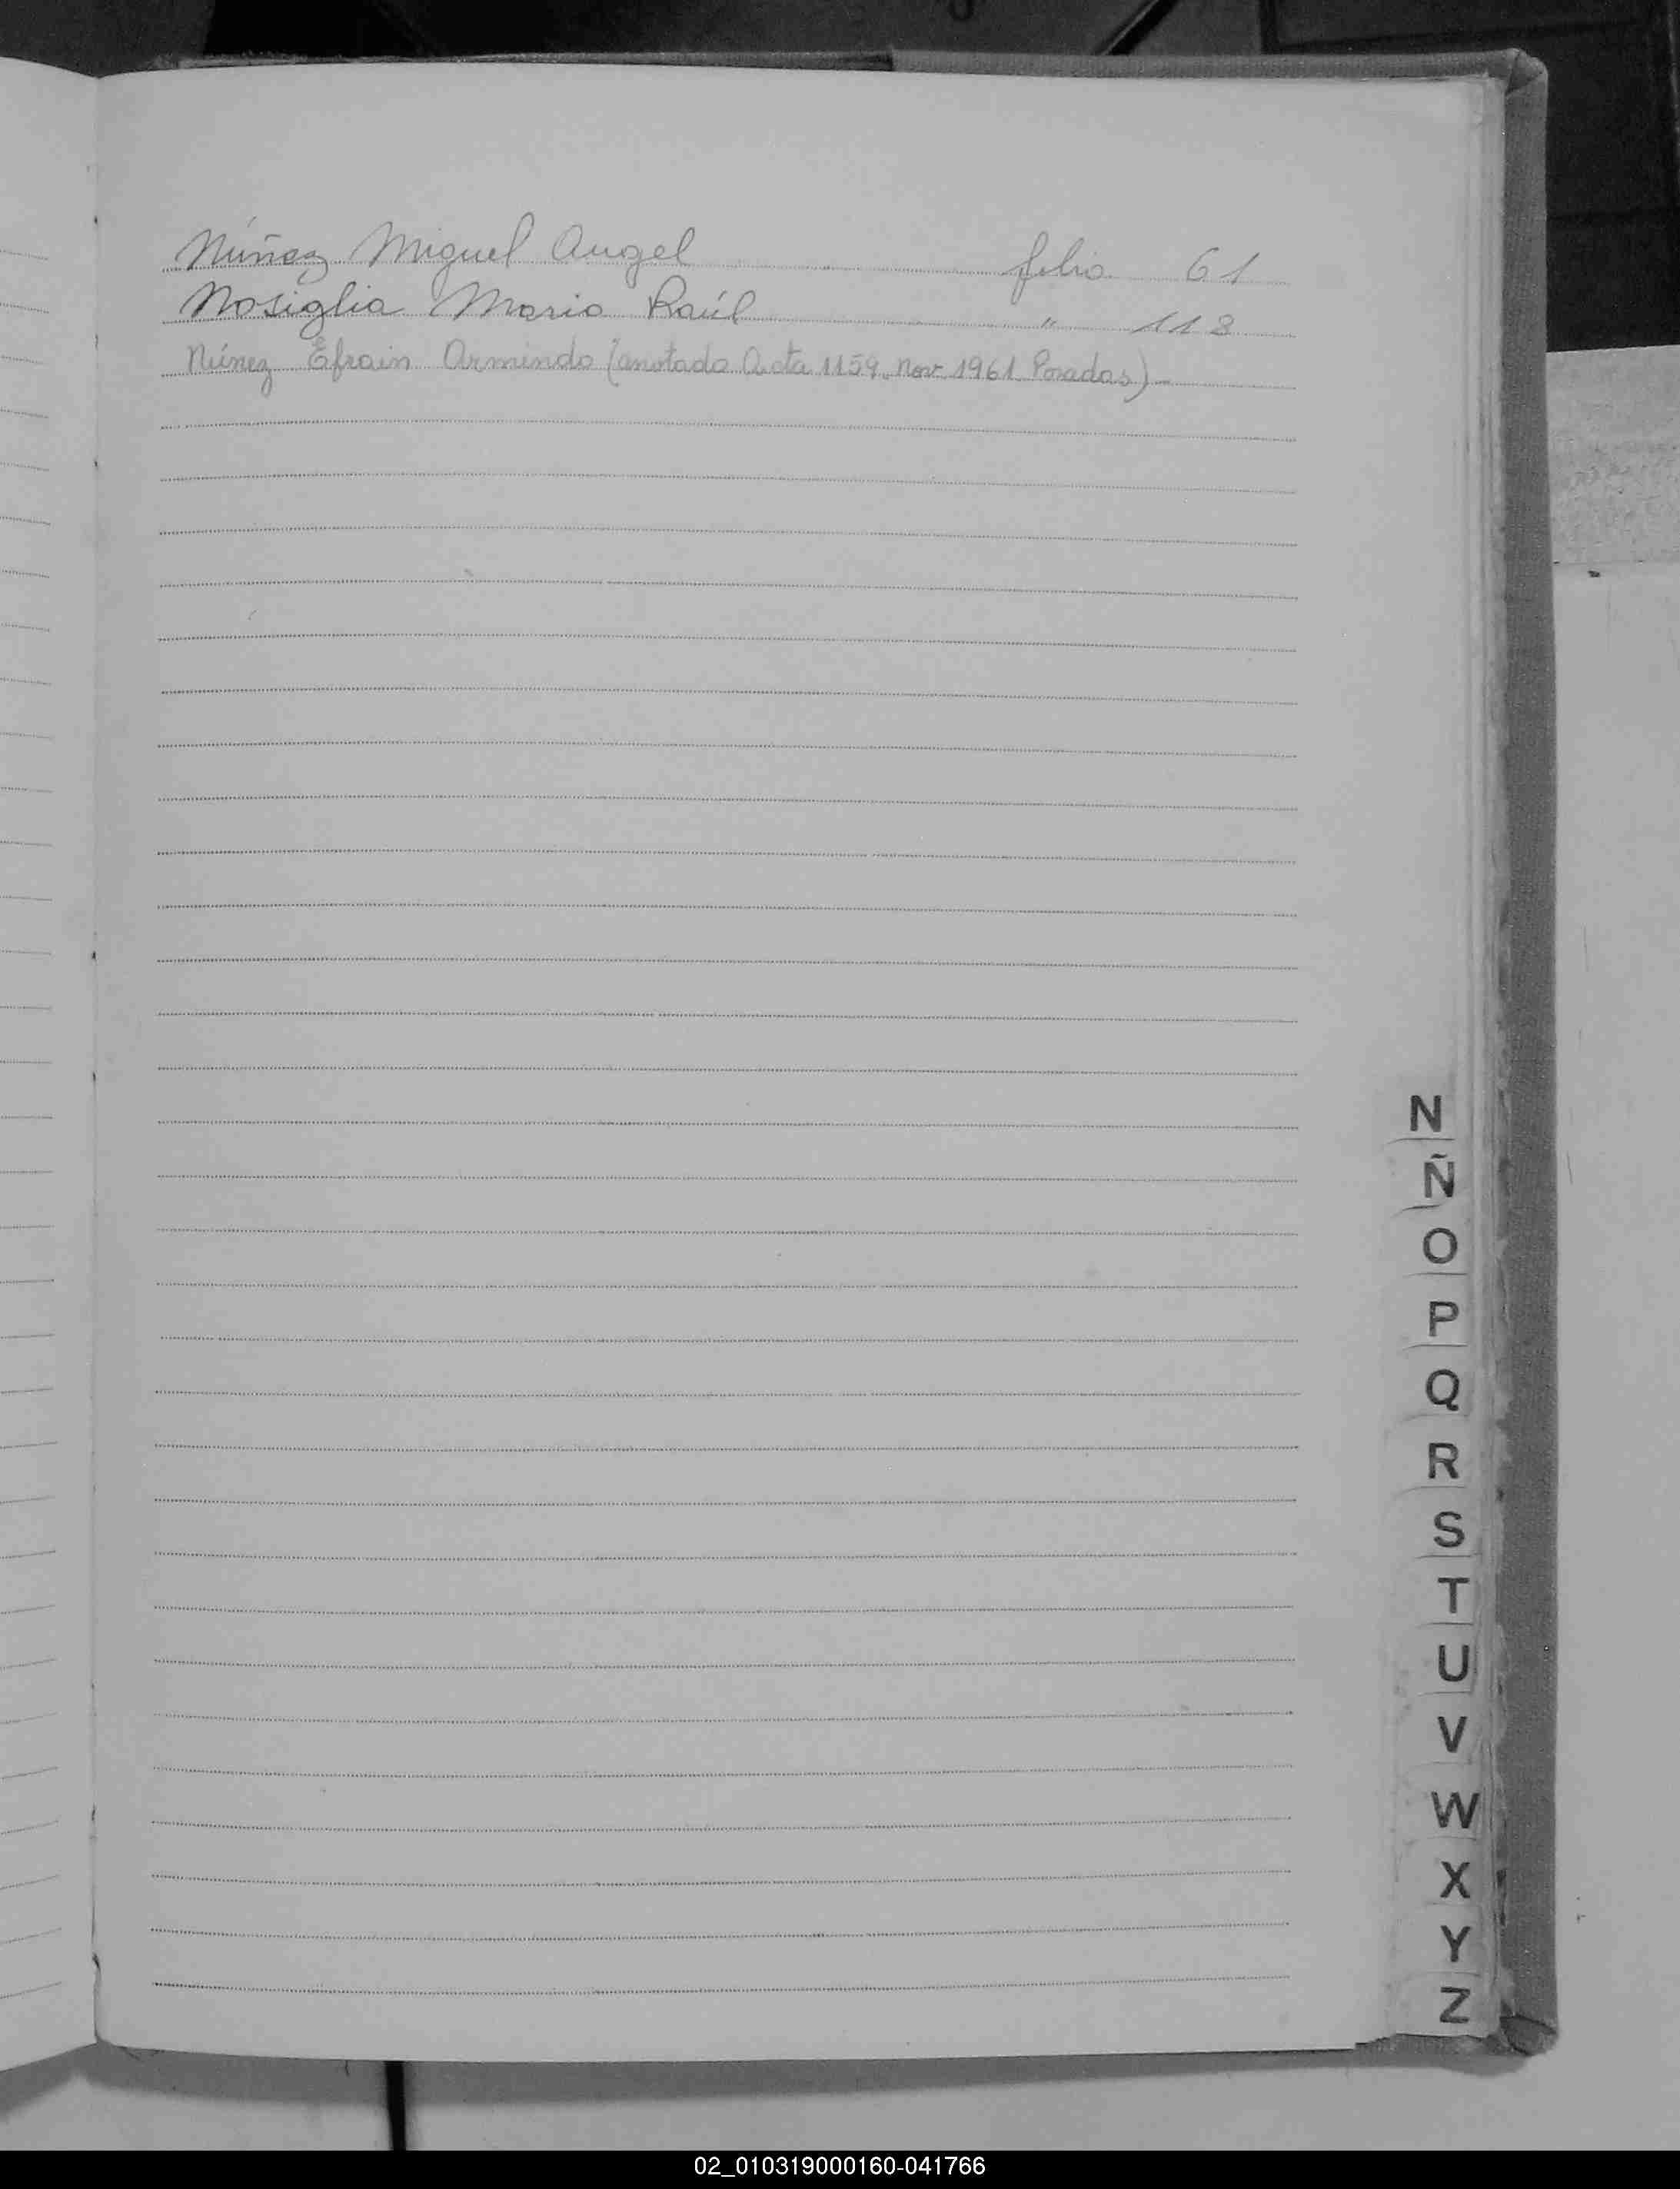 Núñez Miguel Angel folio 61
Nosiglia Mario Raúl " 118
Núnez Efrain Armindo (anotado Acta 1159. Nov 1961 Posadas)-
N
Ñ
O
P
Q
R
S
T
U
V
W
X
Y
Z
02_010319000160-041766